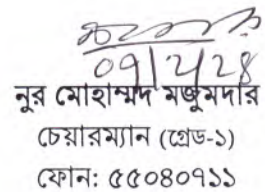 ০৭/২/২৪
নুর মোহাম্মদ মজুমদার
চেয়ারম্যান (গ্রেড-১)
ফোন: ৫৫০৪০৭১১